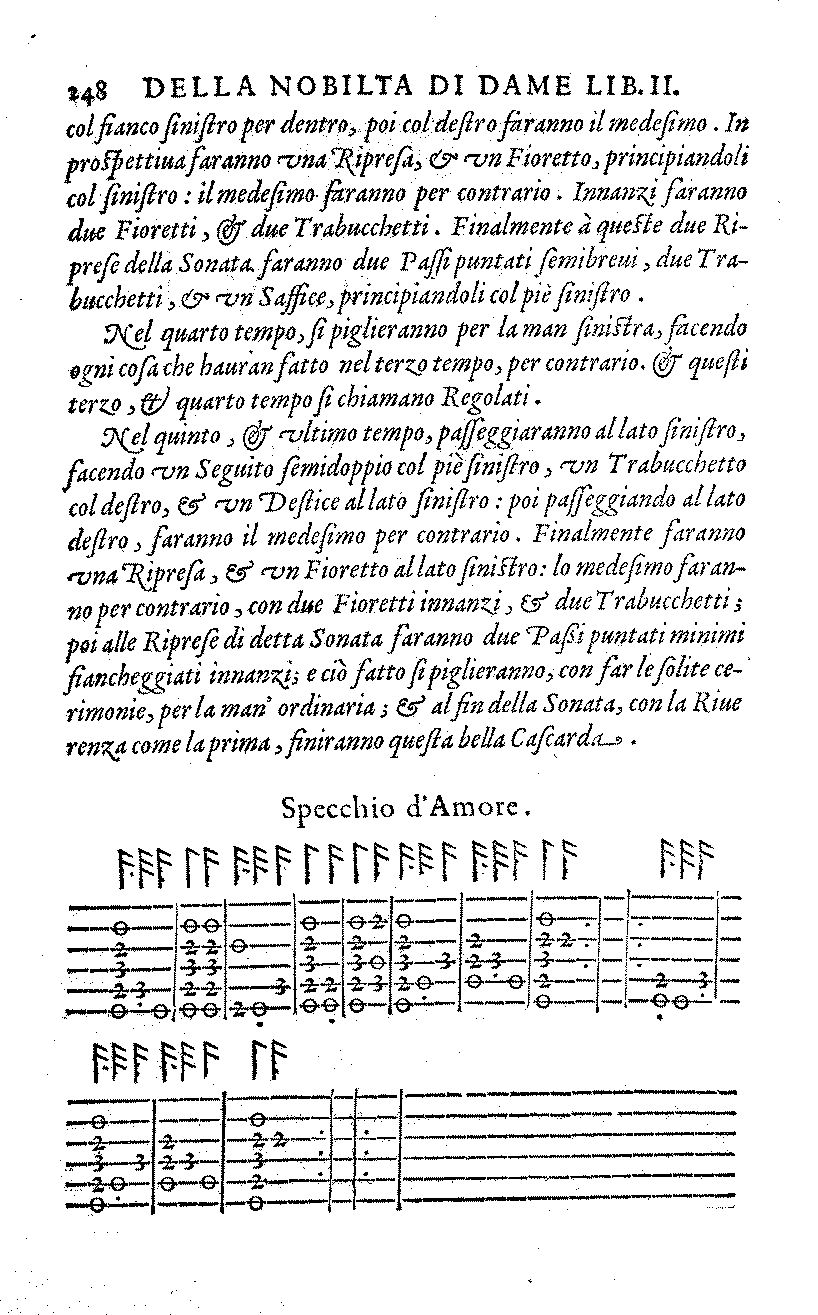 248 DELLA NOBILTA DI DAME LIB. II.
col fianco siniſtro per dentro, poi col deſtro faranno il medeſimo. In
proſpettiua faranno vna Ripreſa, & vn Fioretto, principiandoli
col ſiniſtro : il medeſimo faranno per contrario. Innanzi faranno
due Fioretti, & due Trabucchetti. Finalmente à queſte due Ri-
preſe della Sonata faranno due Paſſi puntati ſemibreui, due Tra-
bucchetti, & vn Saffice, principiandoli col piè ſiniſtro.
Nel quarto tempo, ſi piglieranno per la man ſiniſtra, facendo
ogni coſa che hauran fatto nel terzo tempo, per contrario. & queſti
terzo, & quarto tempo ſi chiamano Regolati.
Nel quinto, & vltimo tempo, paſſeggiaranno al lato ſiniſtro,
facendo vn Seguito ſemidoppio col piè ſiniſtro, vn Trabucchetto
col deſtro, & vn Deſtice al lato ſiniſtro : poi paſſeggiando al lato
deſtro, faranno il medeſimo per contrario. Finalmente faranno
vna Ripreſa, & vn Fioretto al lato ſiniſtro: lo medeſimo faran-
no per contrario, con due Fioretti innanzi, & due Trabucchetti;
poi alle Ripreſe di detta Sonata faranno due Paſſi puntati minimi
fiancheggiati innanzi; e ciò fatto ſi piglieranno, con far le ſolite ce-
rimonie, per la man' ordinaria; & al fin della Sonata, con la Riue
renza come la prima, finiranno queſta bella Caſcarda.
Specchio d'Amore.